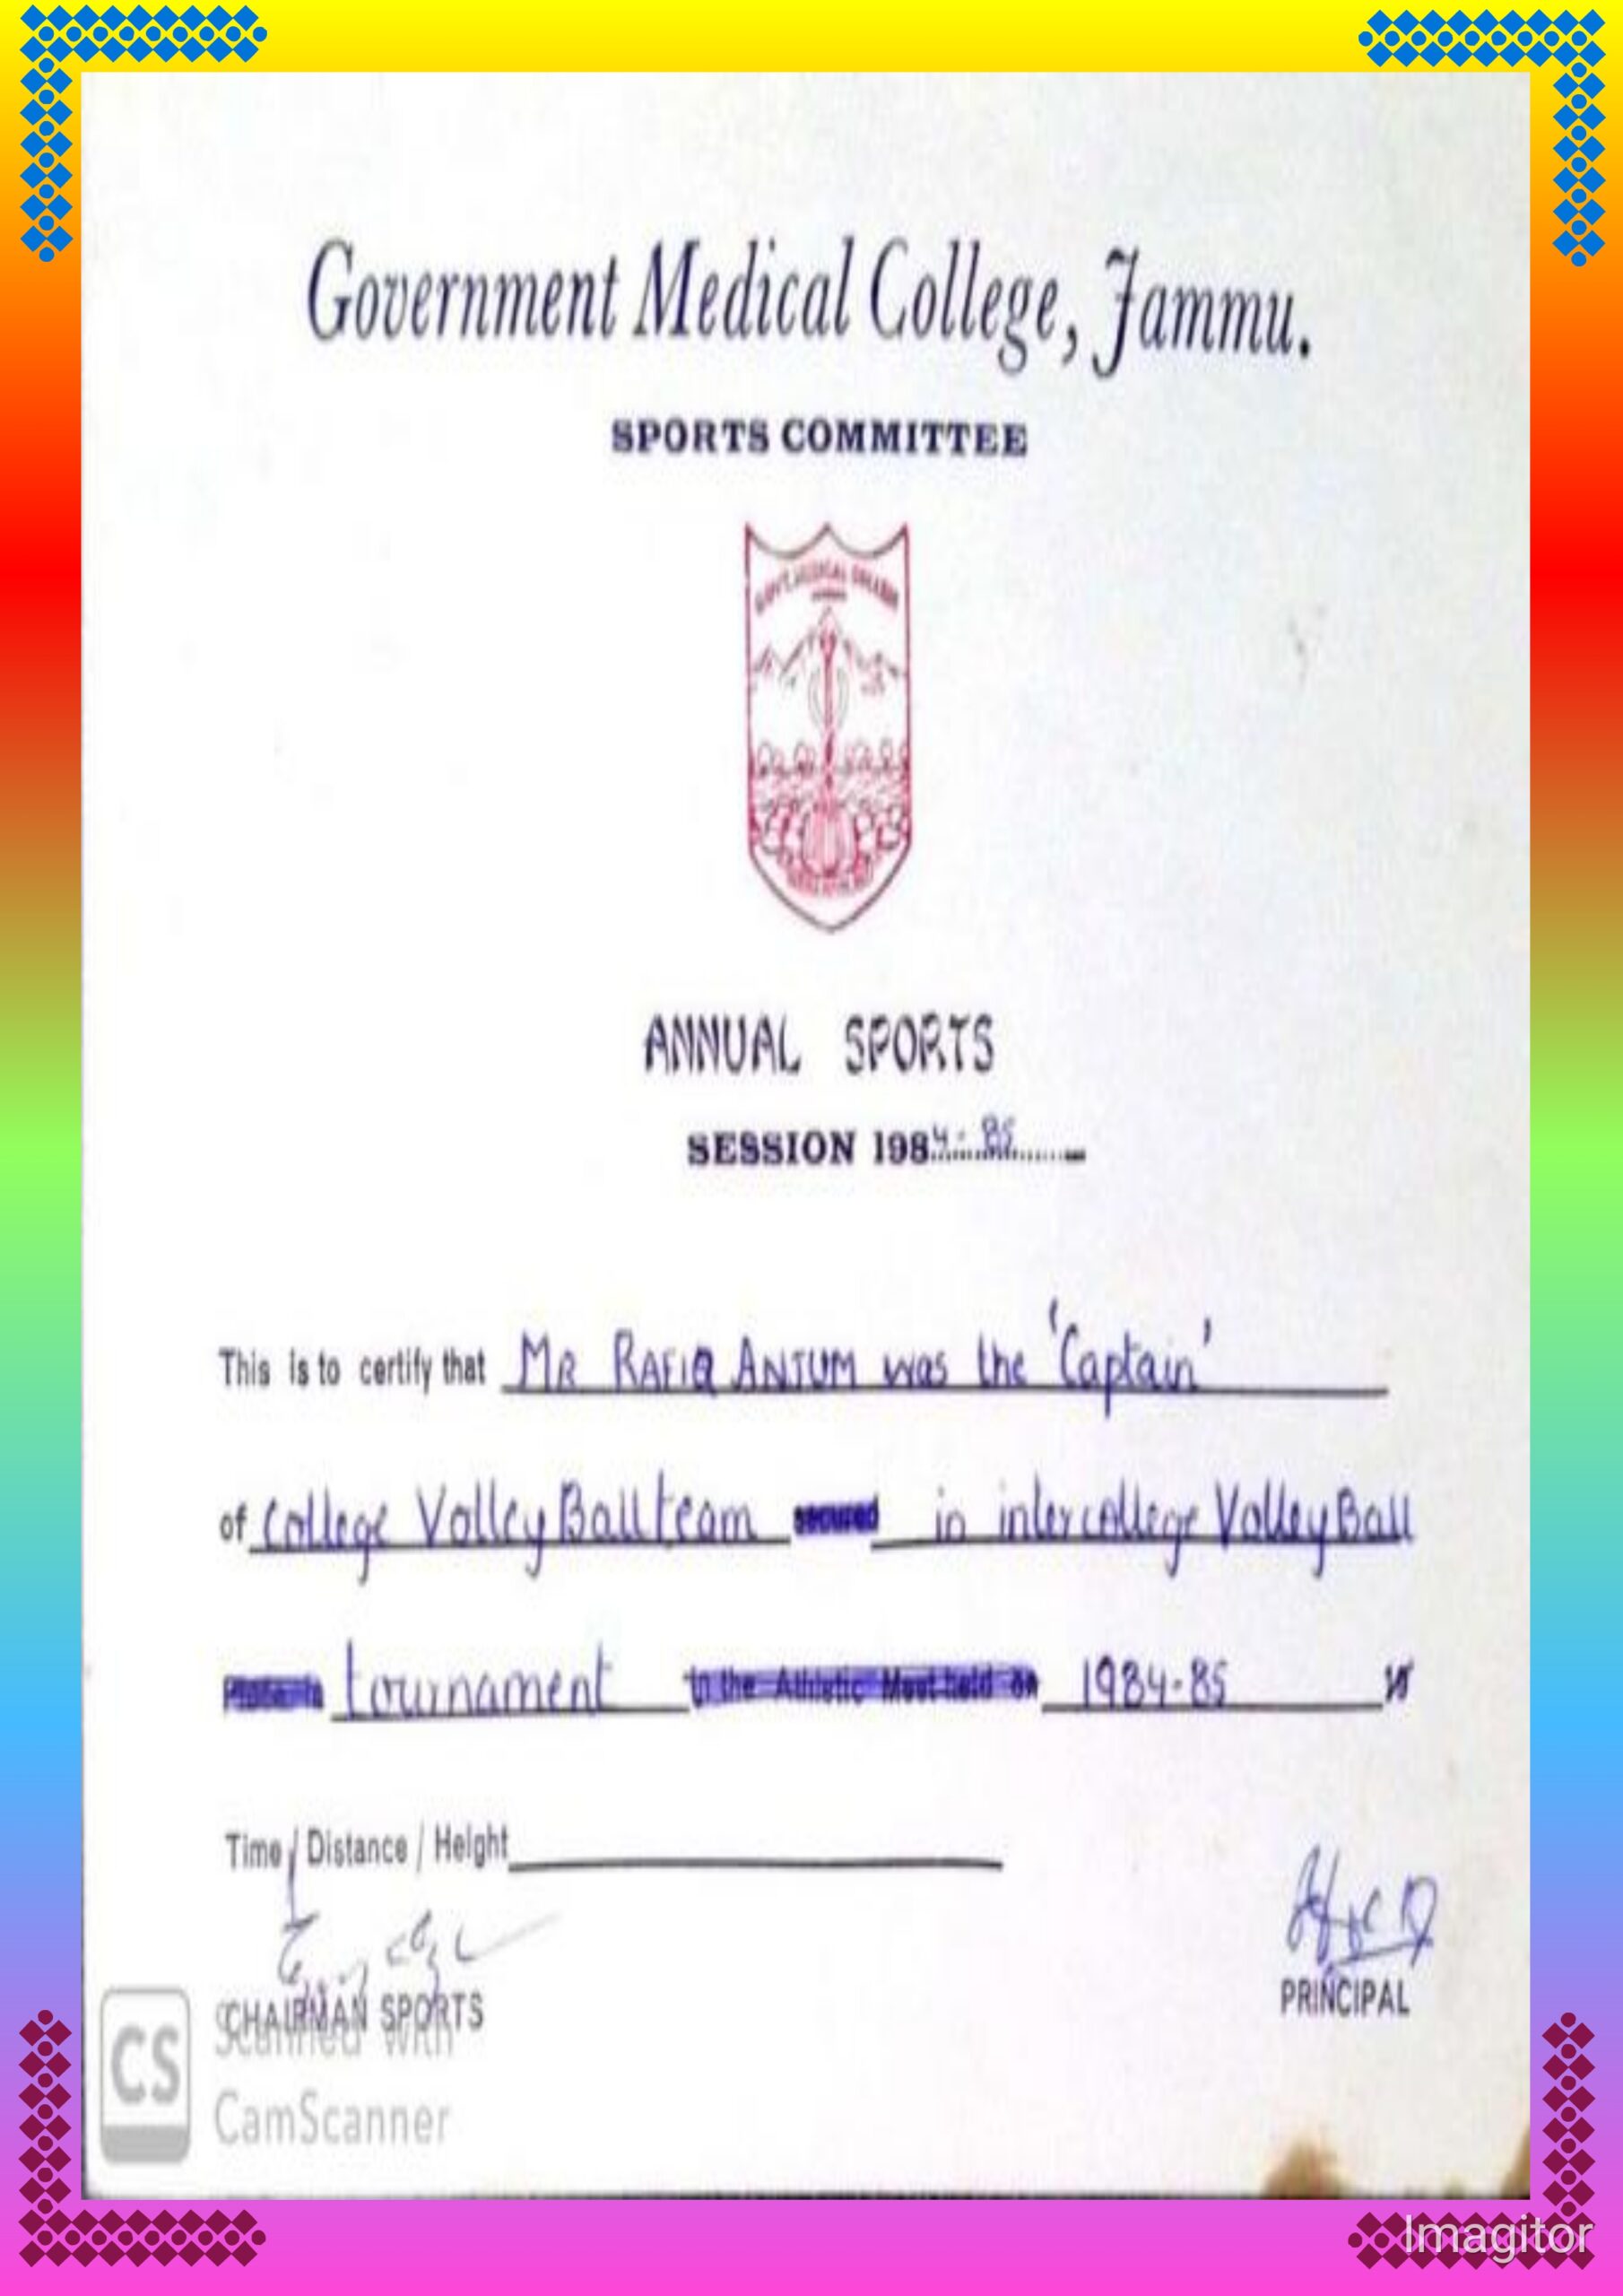 Government Medical College, Jammu.
SPORTS COMMITTEE
GOVT. MEDICAL COLLEGE
ANNUAL SPORTS
SESSION 1984-85
This is to certify that MR RAFIQ ANJUM was the 'Captain'
of College Volley Ball team secured in intercollege Volley Ball
tournament in the Athletic Meet held on 1984-85
Time / Distance / Height
CHAIRMAN SPORTS
PRINCIPAL
CS Scanned with
CamScanner
Imagitor